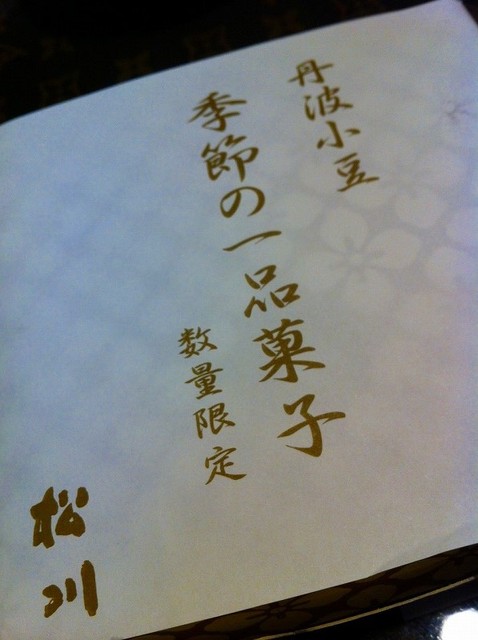 丹波小豆
季節の一品菓子
数量限定
松川